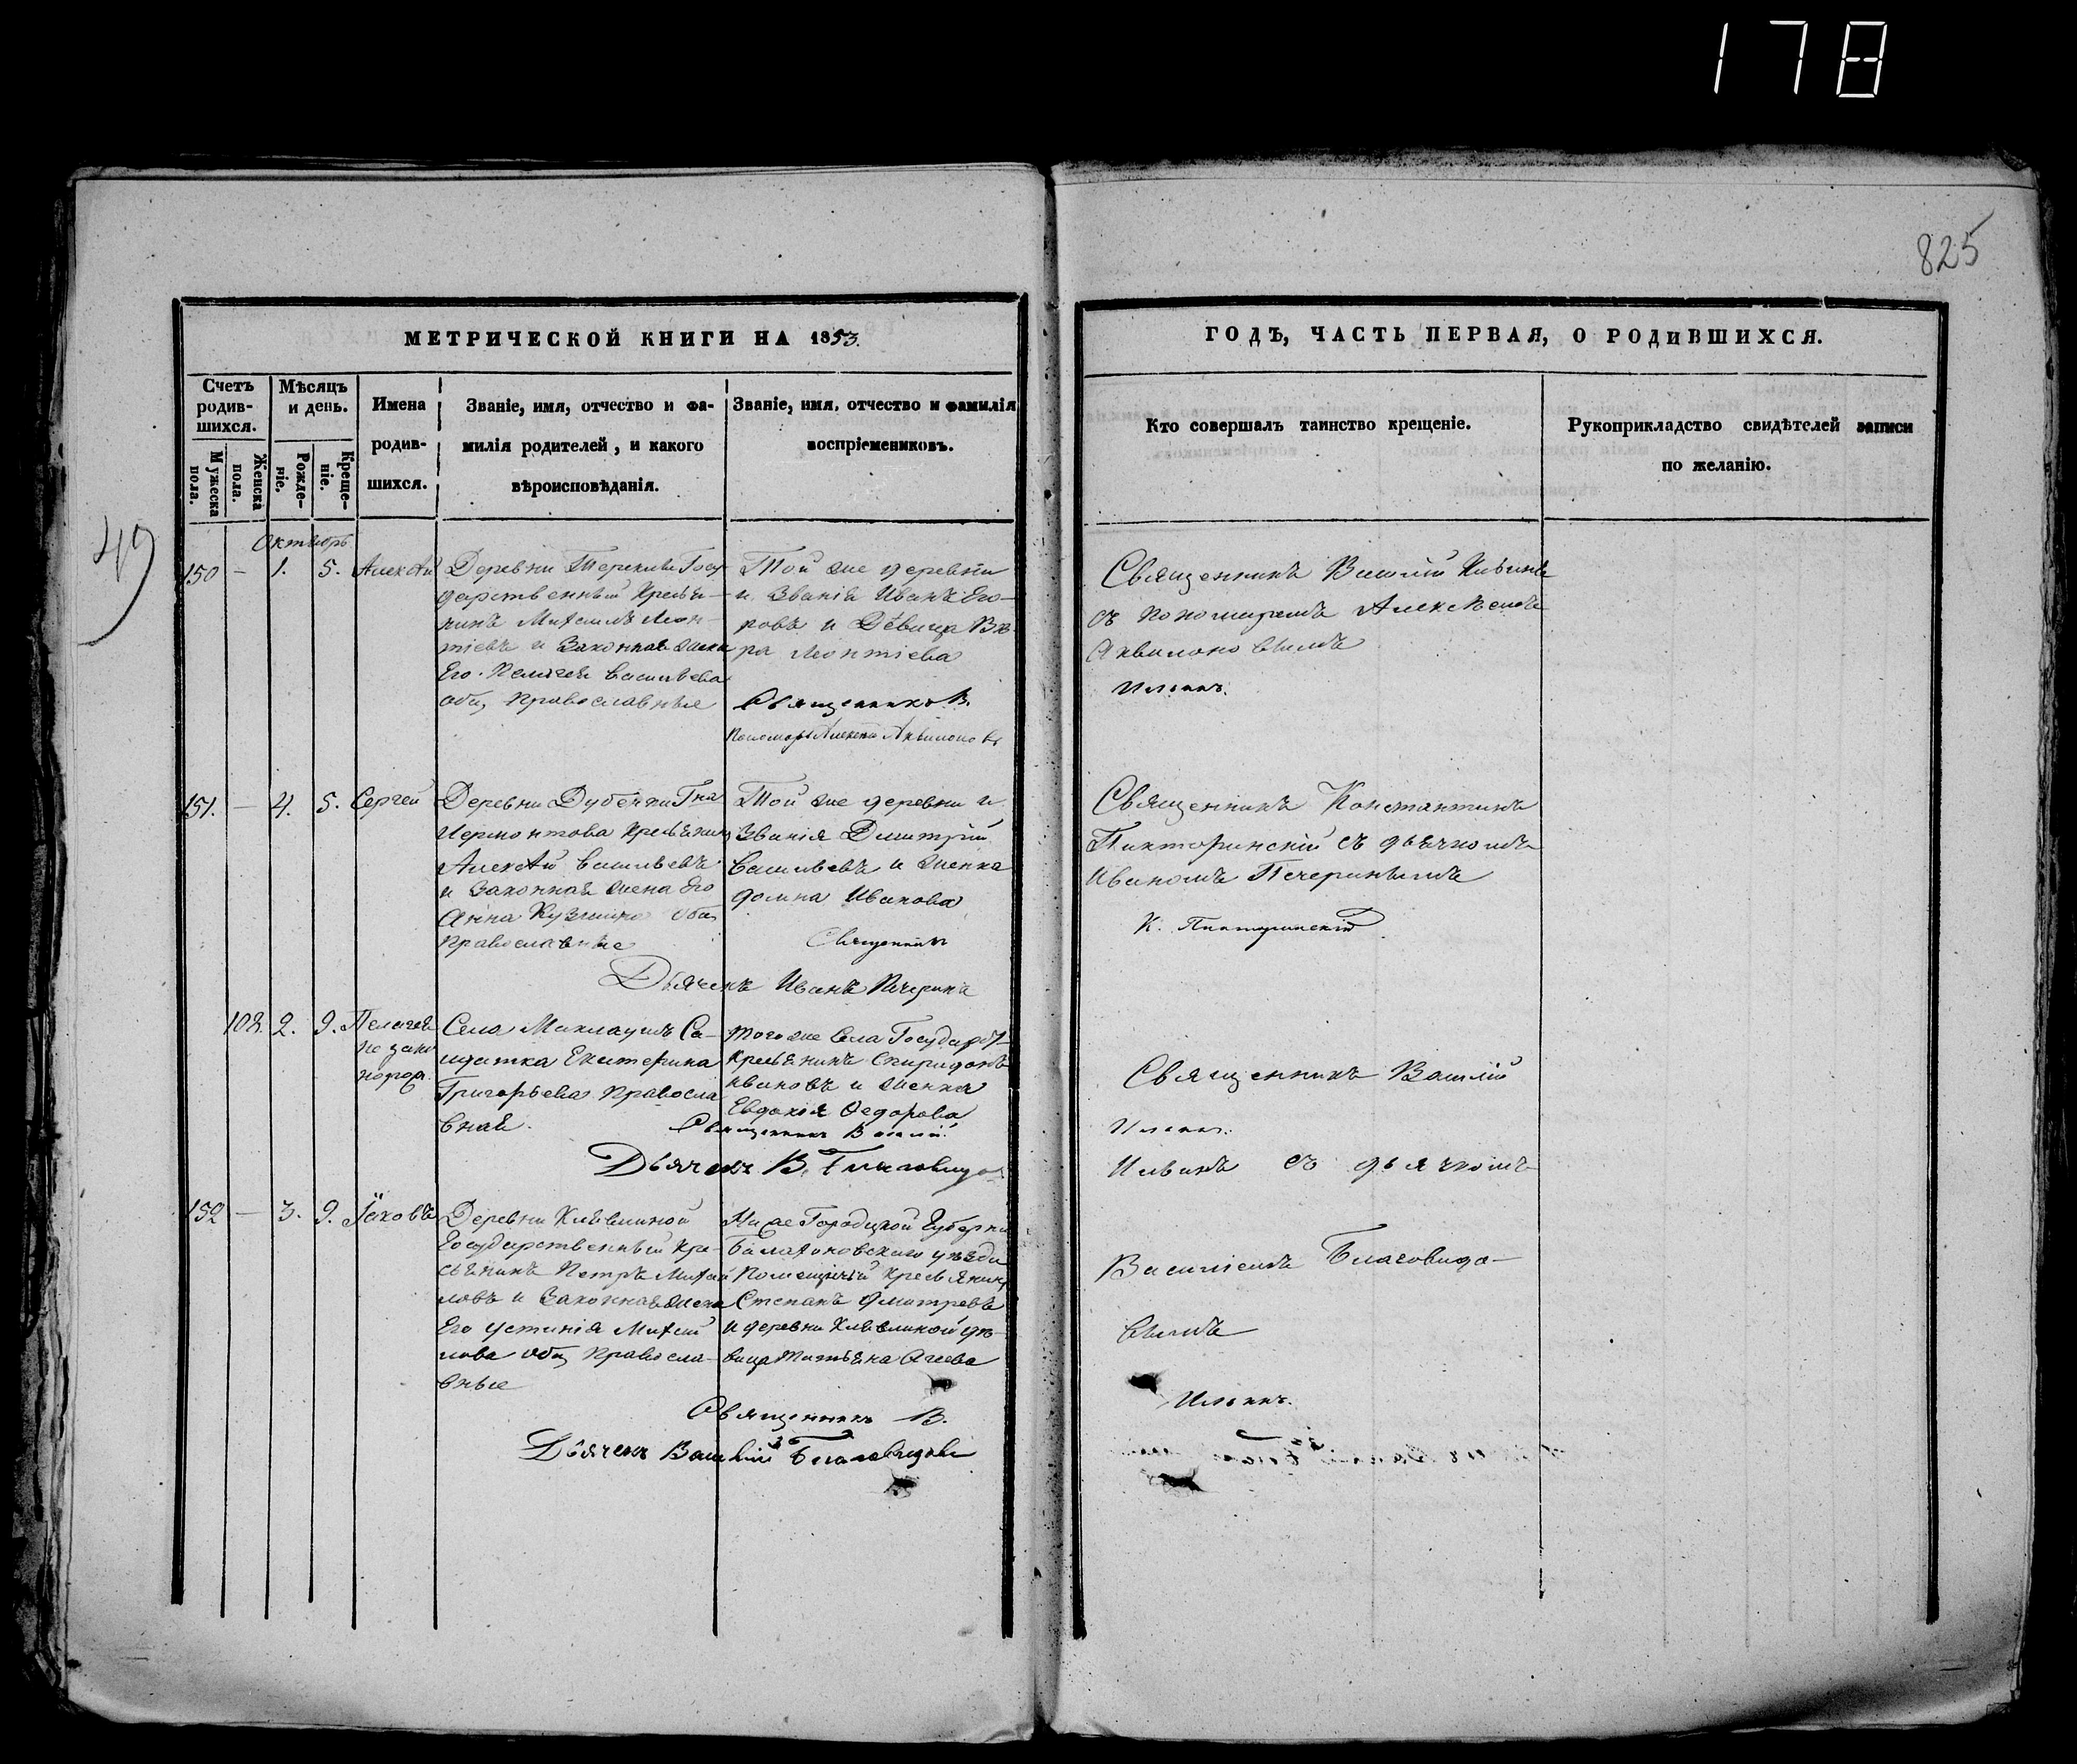 178
825
49
МЕТРИЧЕСКОЙ КНИГИ НА 1853.
ГОДЪ, ЧАСТЬ ПЕРВАЯ, О РОДИВШИХСЯ.
Счетъ родив-шихся.
Мужеска пола.
Женска пола.
Мѣсяцъ и день.
Рожде-ніе.
Креще-ніе.
Имена родив-шихся.
Званіе, имя, отчество и фа-
милія родителей, и какого
вѣроисповѣданія.
Званіе, имя, отчество и фамилія
воспріемниковъ.
Кто совершалъ таинство крещеніе.
Рукоприкладство свидѣтелей записи
по желанію.
Октябрь
150 — 1. 5. Алексѣй
Деревни Госу-
дарственный Кресьь-
нинъ Михаилъ Леон-
тіевъ и Законная жена
Его Пелагея Васильева
оба Православные
Той же деревни
и Званія Иванъ Его-
ровъ и Девица Вѣ-
ра Леонтіева
Священникъ В.
Пономарь Алексей Аквилоновъ
Священникъ Василій Ильинъ
съ пономаремъ Алексѣемъ
Аквилоновымъ
Ильинъ.
151. — 4. 5. Сергей
Деревни Дубенки Гна
Лермонтова Кресьянинъ
Алексѣй Васильевъ
и Законная жена Его
Анна Кузмина оба
Православные
Той же деревни и
Званія Дмитрій
Васильевъ и женка
Домна Иванова
Священникъ
Дьячекъ Иванъ Печеринъ
Священникъ Константинъ
Пикторинскій съ дьячкомъ
Иваномъ Печеринымъ
К. Пикторинскій
108. 2. 9. Пелагея
не зако
норож.
Села Со-
лдатка Екатерина
Григорьева Правосла
вная.
тогоже Села Государст.
Кресьянинъ Спиридонъ
Ивановъ и женка
Евдокія Федорова
Священникъ Василій
Дьячекъ В. Благовидов
Священникъ Василій
Ильинъ.
Ильинъ съ дьячкомъ
152 — 3. 9. Іаковъ
Деревни
Государственный Кре-
сьянинъ Петръ Михай
ловъ и Законная жена
Его Устинія Михай
лова оба Правосла-
вные
Нижегородской Губерни
Балахоновскаго уѣзда
Помещичій Кресьянинъ
Степанъ Дмитревъ
и деревни дѣ-
вица Татьяна Агеева
Священникъ В.
Дьячекъ Василій Благовидовъ
Василіемъ Благовидо-
вымъ
Ильинъ.